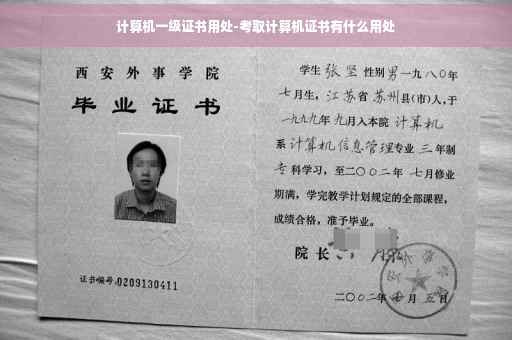 计算机一级证书用处-考取计算机证书有什么用处
西安外事学院
毕业证书
证书编号:0209130411
学生 张坚 性别 男 一九八〇年
七月生, 江苏省 苏州县(市)人,于
一九九九年 九月入本院 计算机
系 计算机信息管理专业 三 年制
专科学习,至二〇〇二年 七月修业
期满,学完教学计划规定的全部课程,
成绩合格,准予毕业。
院长
二〇〇二年 月 五日